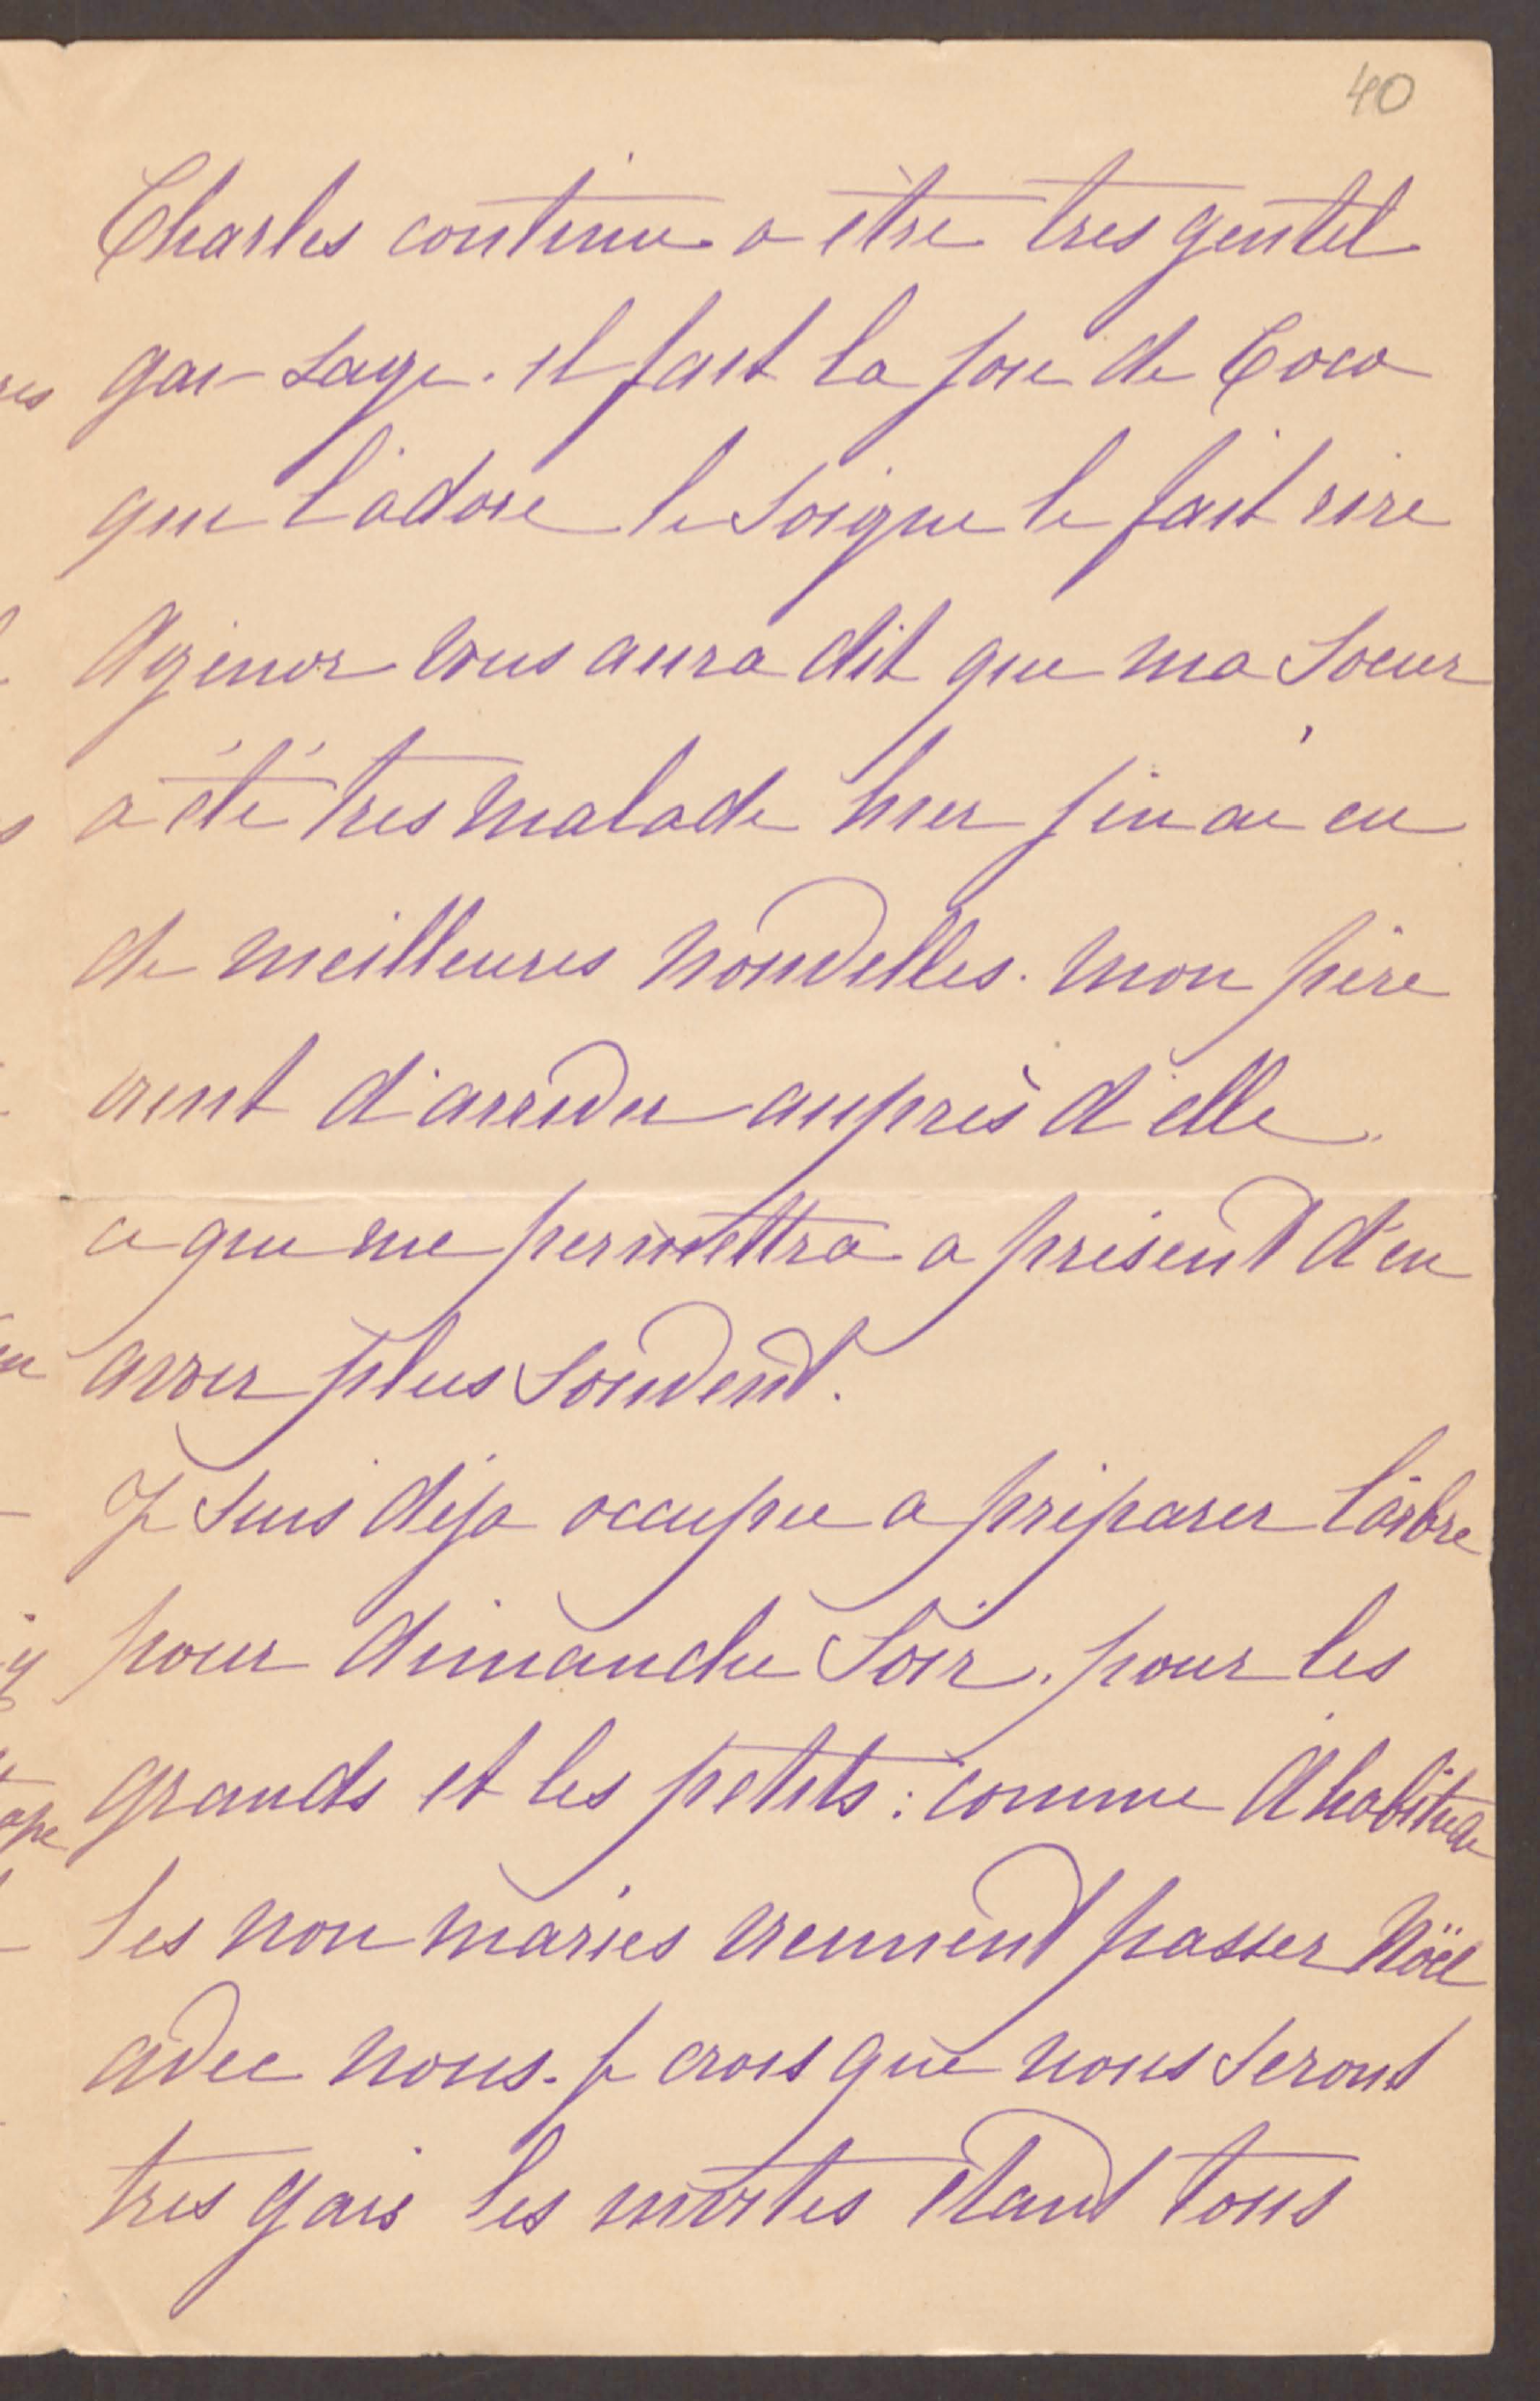 40
Charles continue a être tres gentil
gai sage. il fait la joie de Coco
qui l'adore le soigne le fait rire
Agénor vous aura dit que ma soeur
a été tres malade hier j'en ai eu
de meilleures nouvelles. mon père
vient d'arriver auprès d'elle
ce qui me permettra a présent d'en
avoir plus souvent.
Je suis déja occupée a préparer l'arbre
pour dimanche soir. pour les
grands et les petits: comme d'habitude
les non mariés viennent passer Noël
avec nous. je crois que nous seront
tres gais les invités étant tous